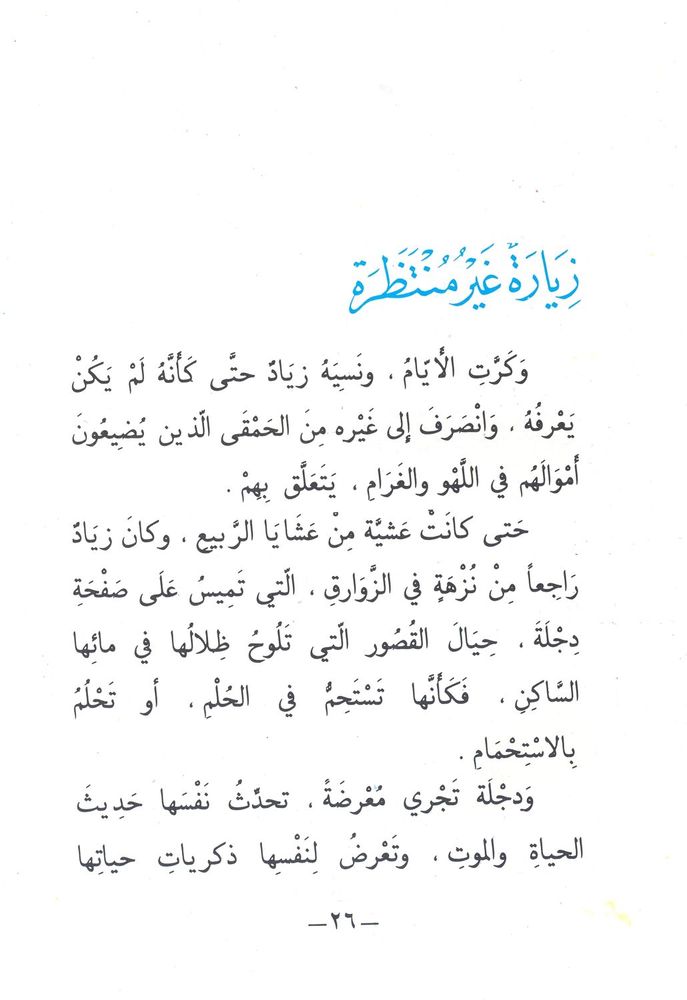 زِيَارَةٌ غَيْرُ مُنْتَظَرَة
وَكَرَّتِ الأَيّامُ ، ونَسِيَهُ زيَادٌ حتَّى كَأَنَّهُ لَمْ يَكُنْ
يَعْرفُهُ ، وَانْصَرَفَ إلى غَيْره مِنَ الحَمْقَى الّذين يُضِيعُونَ
أَمْوَالَهُم في اللَّهْو والغَرَامِ ، يَتَعَلَّق بِهِمْ .
حَتى كانَتْ عَشيَّة مِنْ عَشَايَا الرَّبيعِ ، وكانَ زيَادٌ
رَاجِعاً مِنْ نُزْهَةٍ في الزَّوَارقِ ، الّتي تَمِيسُ عَلَى صَفْحَةِ
دِجْلَةَ ، حِيَالَ القُصُور الّتي تَلُوحُ ظِلالُها في مائِها
السَّاكِنِ ، فَكَأَنَّها تَسْتَحِمُّ في الحُلْمِ ، أو تَحْلُمُ
بِالاسْتِحْمَامِ .
وَدجْلَة تَجْري مُعْرضَةً ، تحدِّثُ نَفْسَها حَدِيثَ
الحياةِ والموتِ ، وتَعْرضُ لِنَفْسِها ذكرياتِ حياتِها
—٢٦—